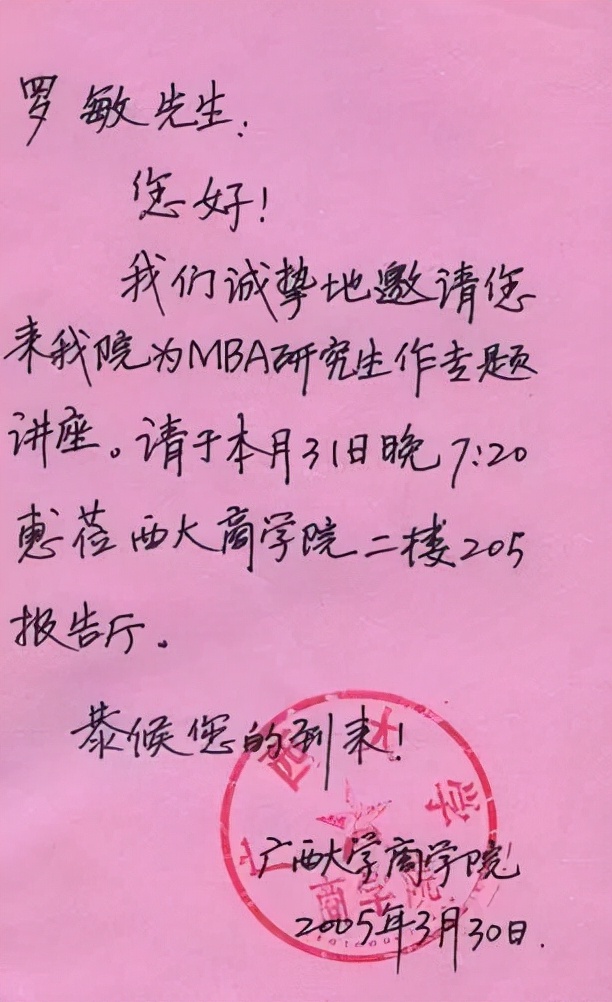 罗敏先生：
您好！
我们诚挚地邀请您
来我院为MBA研究生作专题
讲座。请于本月31日晚7:20
惠莅西大商学院二楼205
报告厅.
恭候您的到来！
广西大学商学院
2005年3月30日.
广西大学
商学院